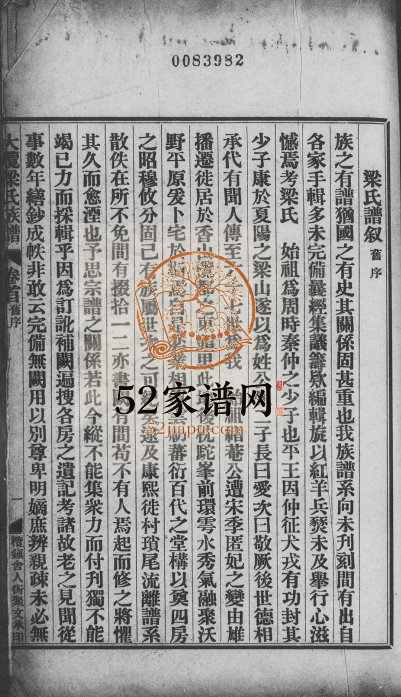 0083982
梁氏譜叙 舊序
族之有譜猶國之有史其關係固甚重也我族譜系向未刋刻間有出自
各家手輯多未完備曩經集議籌欵編輯旋以紅羊兵燹未及舉行心滋
憾焉考梁氏 始祖爲周時秦仲之少子也平王因仲征犬戎有功封其
少子康於夏陽之梁山遂以爲姓公 二子長曰愛次曰敬厥後世德相
承代有聞人傳至 菴公遭宋季匿妃之變由雄
播遷徙居於香山 枕駝峯前環雩水秀氣融聚沃
野平原爰卜宅於 蕃衍百代之堂構以奠四房
之昭穆攸分固已有族屬世 之可 及康熙徙村瑣尾流離譜系
散佚在所不免間有掇拾一二亦書 有間苟不有人焉起而修之將懼
其久而愈湮也予思宗譜之關係若此今縱不能集衆力而付刋獨不能
竭已力而採輯乎因爲訂訛補闕遍搜各房之遺記考諸故老之見聞從
事數年繕鈔成帙非敢云完備無闕用以別尊卑明嫡庶辨親疎未必無
大欖梁氏族譜 卷首 舊序 一 欖鎮舍人街聚文承印
52家谱网
52jiapu.com